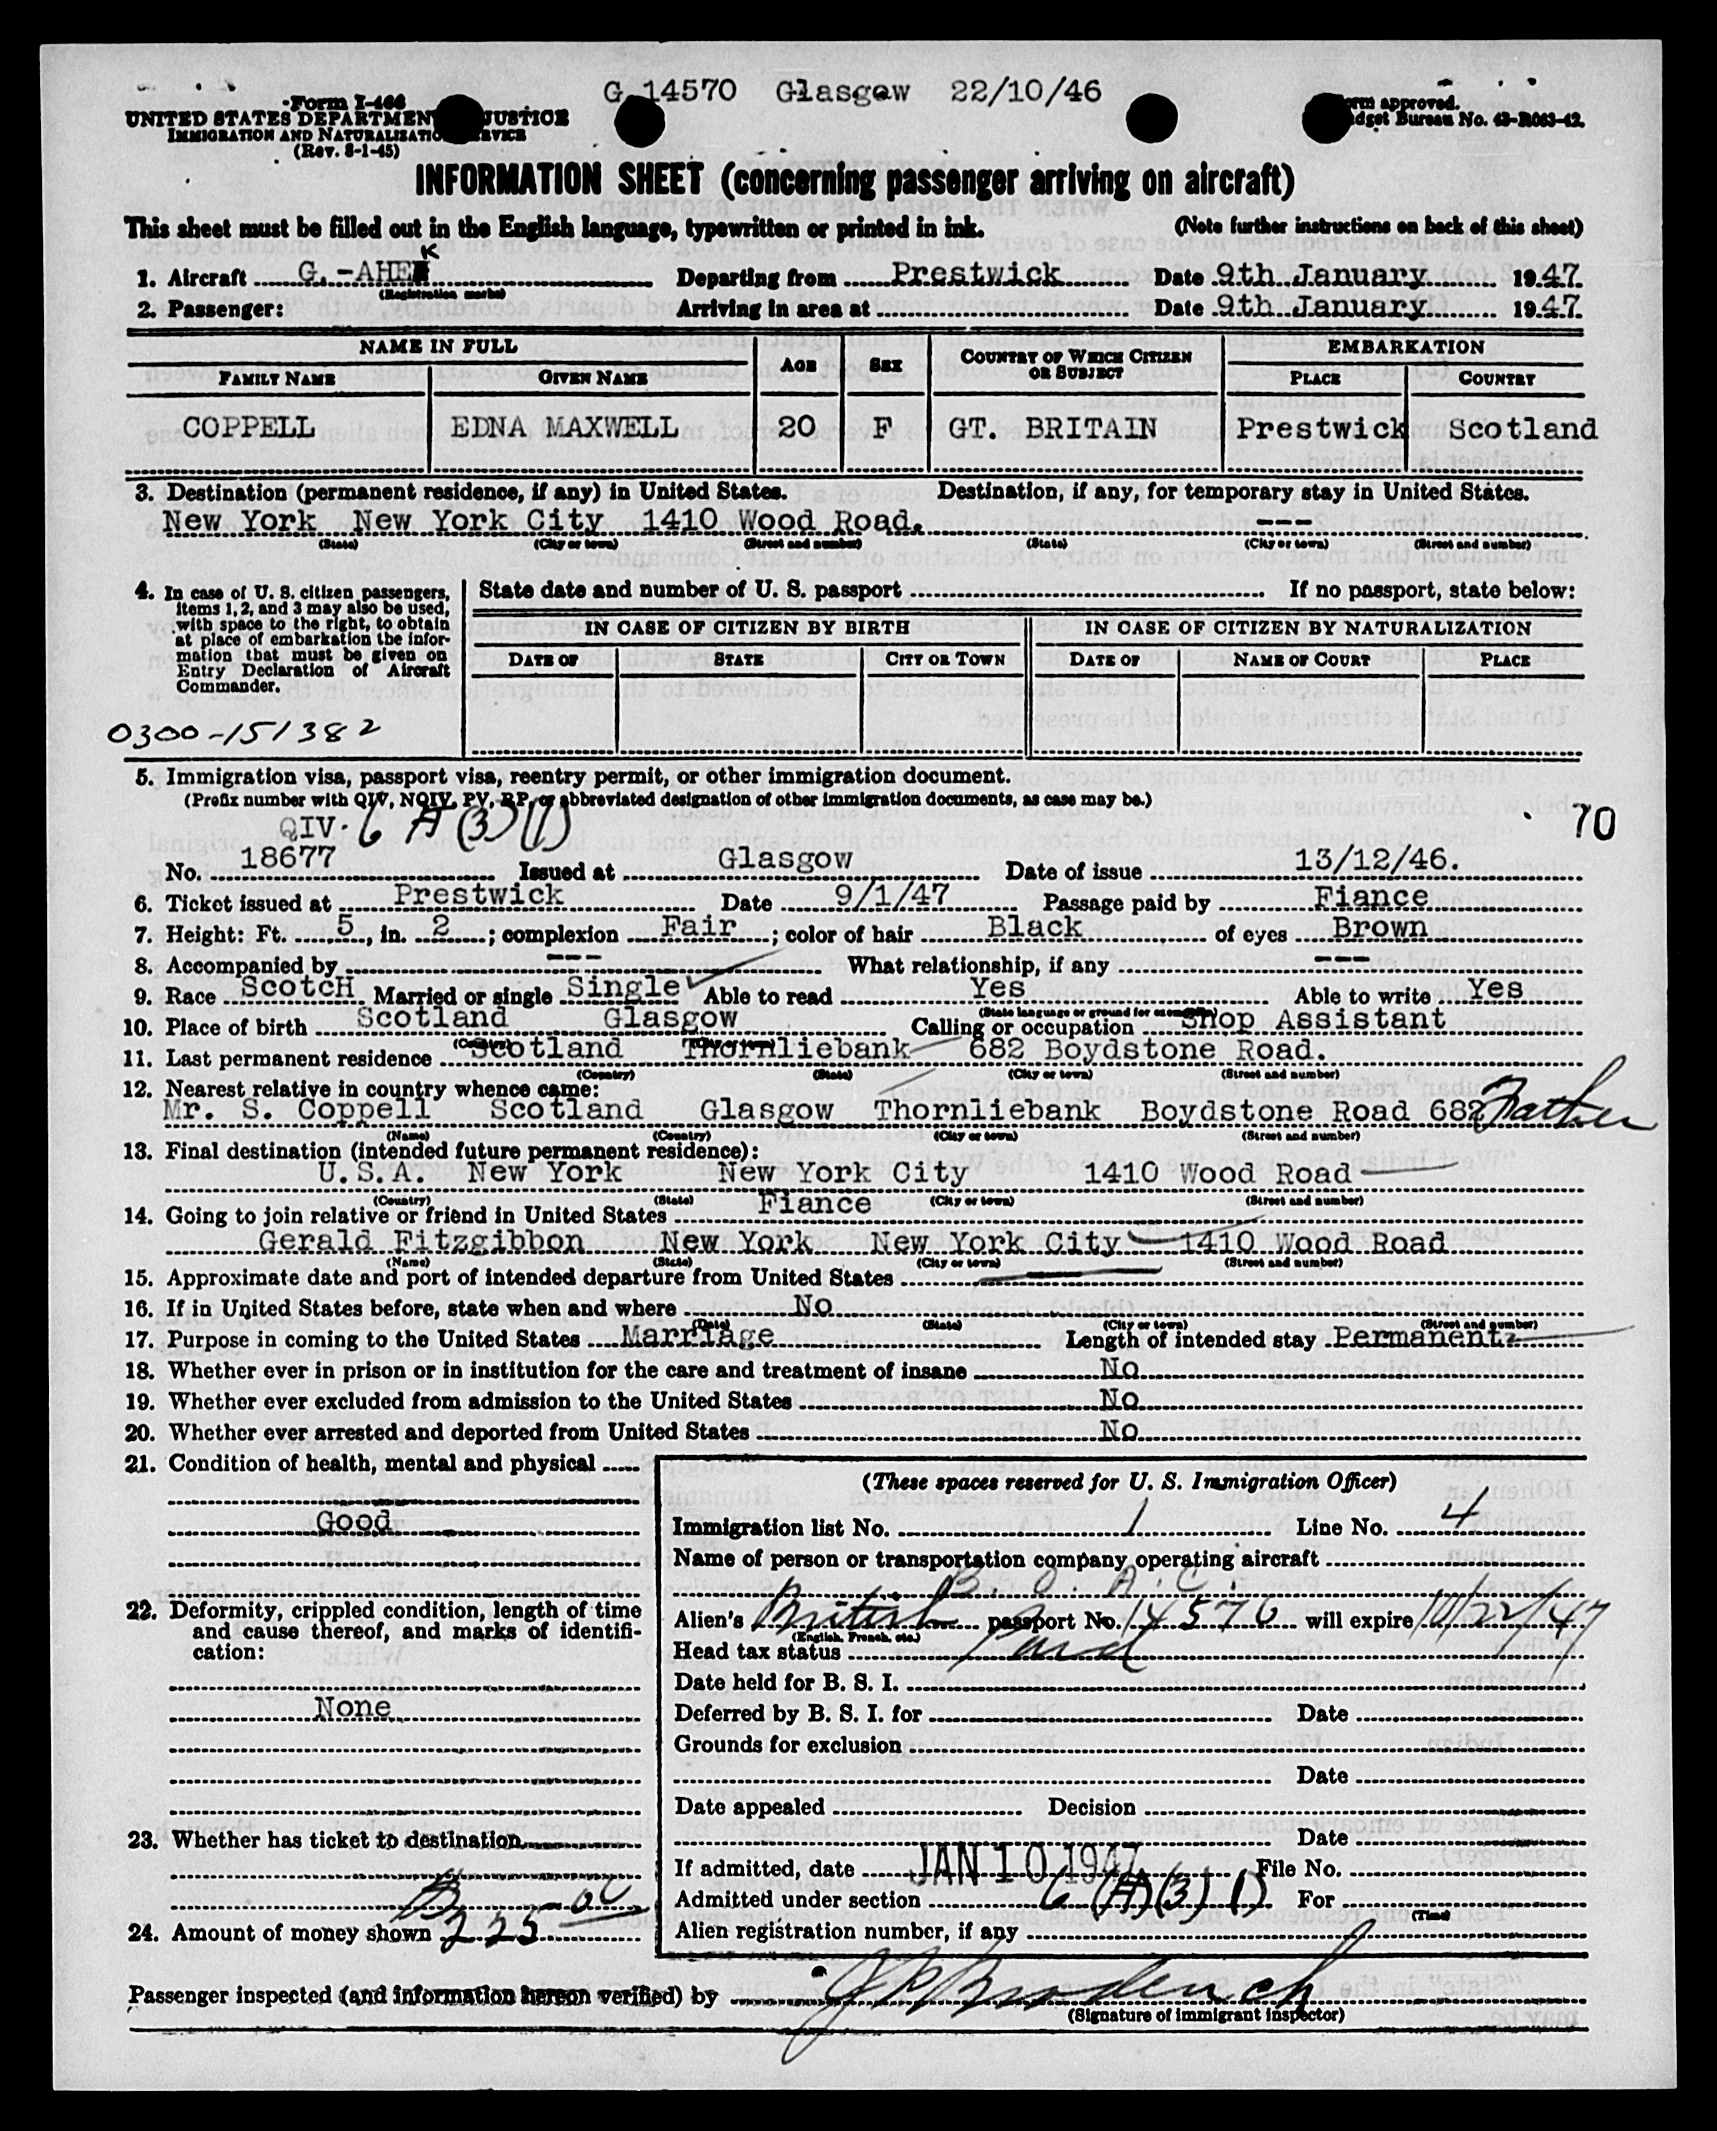 G 14570 Glasgow 22/10/46
Form I-466
UNITED STATES DEPARTMENT JUSTICE
IMMIGRATION AND NATURALIZATION SERVICE
(Rev. 8-1-45)
Form approved.
Budget Bureau No. 43-R063-42.
INFORMATION SHEET (concerning passenger arriving on aircraft)
This sheet must be filled out in the English language, typewritten or printed in ink. (Note further instructions on back of this sheet)
1. Aircraft G.-AHEK Departing from Prestwick Date 9th January 1947.
(Registration marks)
2. Passenger: Arriving in area at Date 9th January 1947.
NAME IN FULL AGE SEX COUNTRY OF WHICH CITIZEN OR SUBJECT EMBARKATION
FAMILY NAME GIVEN NAME PLACE COUNTRY
COPPELL EDNA MAXWELL 20 F GT. BRITAIN Prestwick Scotland
3. Destination (permanent residence, if any) in United States. Destination, if any, for temporary stay in United States.
New York New York City 1410 Wood Road. ---
(State) (City or town) (Street and number) (State) (City or town) (Street and number)
4. In case of U. S. citizen passengers, items 1, 2, and 3 may also be used, with space to the right, to obtain at place of embarkation the information that must be given on Entry Declaration of Aircraft Commander.
State date and number of U. S. passport If no passport, state below:
IN CASE OF CITIZEN BY BIRTH IN CASE OF CITIZEN BY NATURALIZATION
DATE OF STATE CITY OR TOWN DATE OF NAME OF COURT PLACE
0300-151382
5. Immigration visa, passport visa, reentry permit, or other immigration document.
(Prefix number with QIV, NQIV, PV, RP, or abbreviated designation of other immigration documents, as case may be.)
70
QIV. 6 A (3) (1)
No. 18677 Issued at Glasgow Date of issue 13/12/46.
6. Ticket issued at Prestwick Date 9/1/47 Passage paid by Fiance
7. Height: Ft. 5, in. 2; complexion Fair; color of hair Black of eyes Brown
8. Accompanied by --- What relationship, if any ---
9. Race ScotcH Married or single Single Able to read Yes Able to write Yes
(State language or ground for exemption)
10. Place of birth Scotland Glasgow Calling or occupation Shop Assistant
(Country) (City or town)
11. Last permanent residence Scotland Thornliebank 682 Boydstone Road.
(Country) (State) (City or town) (Street and number)
12. Nearest relative in country whence came:
Mr. S. Coppell Scotland Glasgow Thornliebank Boydstone Road 682 Father
(Name) (Country) (City or town) (Street and number)
13. Final destination (intended future permanent residence):
U.S.A. New York New York City 1410 Wood Road
(Country) (State) (City or town) (Street and number)
14. Going to join relative or friend in United States Fiance
Gerald Fitzgibbon New York New York City 1410 Wood Road
(Name) (State) (City or town) (Street and number)
15. Approximate date and port of intended departure from United States
16. If in United States before, state when and where No
(Date) (State) (City or town) (Street and number)
17. Purpose in coming to the United States Marriage Length of intended stay Permanent
18. Whether ever in prison or in institution for the care and treatment of insane No
19. Whether ever excluded from admission to the United States No
20. Whether ever arrested and deported from United States No
21. Condition of health, mental and physical
Good
22. Deformity, crippled condition, length of time and cause thereof, and marks of identification:
None
23. Whether has ticket to destination
24. Amount of money shown 225
(These spaces reserved for U. S. Immigration Officer)
Immigration list No. 1 Line No. 4
Name of person or transportation company operating aircraft
B. O. A. C.
Alien's British passport No. 14576 will expire 10/22/47
(English, French, etc.)
Head tax status Paid
Date held for B. S. I.
Deferred by B. S. I. for Date
Grounds for exclusion
Date
Date appealed Decision
Date
If admitted, date JAN 10 1947 File No.
Admitted under section 6 (A)(3) 1) For
(Time)
Alien registration number, if any
Passenger inspected (and information hereon verified) by
(Signature of immigrant inspector)